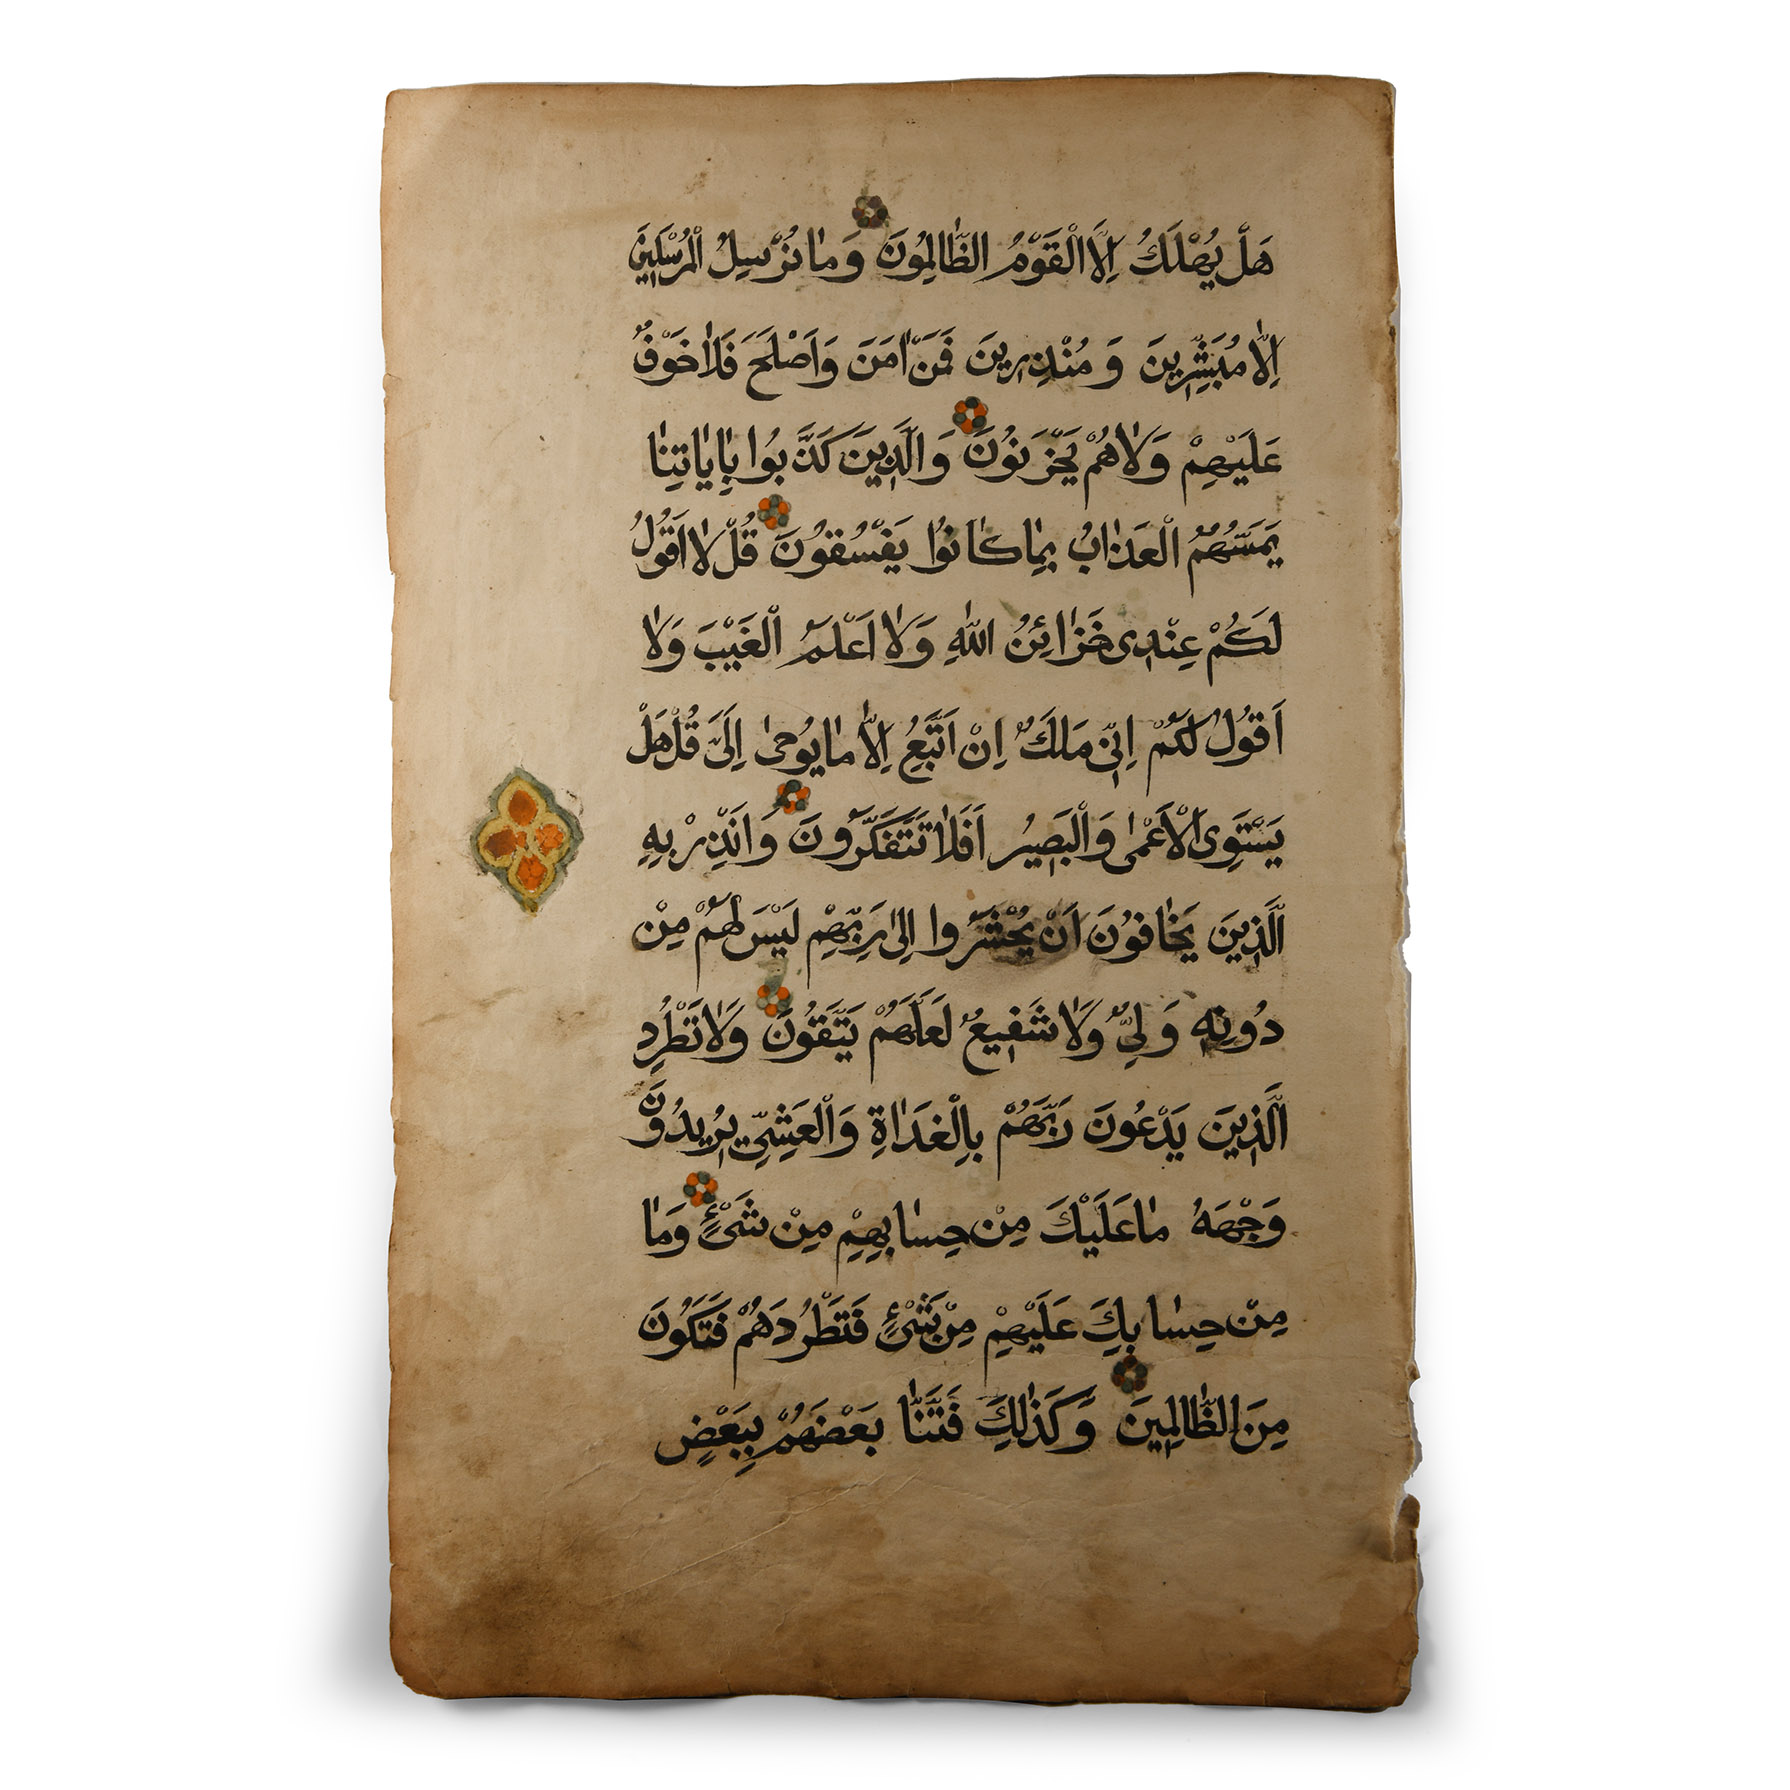 هَلْ يُهْلَكُ اِلَّا الْقَوْمُ الظَّالِمُونَ وَمَا نُرْسِلُ الْمُرْسَلِينَ
اِلَّا مُبَشِّرِينَ وَمُنْذِرِينَ فَمَنْ اٰمَنَ وَاَصْلَحَ فَلَا خَوْفٌ
عَلَيْهِمْ وَلَا هُمْ يَحْزَنُونَ وَالَّذِينَ كَذَّبُوا بِاٰيَاتِنَا
يَمَسُّهُمُ الْعَذَابُ بِمَا كَانُوا يَفْسُقُونَ قُلْ لَا اَقُولُ
لَكُمْ عِنْدِى خَزَائِنُ اللّٰهِ وَلَا اَعْلَمُ الْغَيْبَ وَلَا
اَقُولُ لَكُمْ اِنِّى مَلَكٌ اِنْ اَتَّبِعُ اِلَّا مَا يُوحٰى اِلَىَّ قُلْ هَلْ
يَسْتَوِى الْاَعْمٰى وَالْبَصِيرُ اَفَلَا تَتَفَكَّرُونَ وَاَنْذِرْ بِهِ
الَّذِينَ يَخَافُونَ اَنْ يُحْشَرُوا اِلٰى رَبِّهِمْ لَيْسَ لَهُمْ مِنْ
دُونِهِ وَلِىٌّ وَلَا شَفِيعٌ لَعَلَّهُمْ يَتَّقُونَ وَلَا تَطْرُدِ
الَّذِينَ يَدْعُونَ رَبَّهُمْ بِالْغَدَاةِ وَالْعَشِىِّ يُرِيدُونَ
وَجْهَهُ مَا عَلَيْكَ مِنْ حِسَابِهِمْ مِنْ شَىْءٍ وَمَا
مِنْ حِسَابِكَ عَلَيْهِمْ مِنْ شَىْءٍ فَتَطْرُدَهُمْ فَتَكُونَ
مِنَ الظَّالِمِينَ وَكَذٰلِكَ فَتَنَّا بَعْضَهُمْ بِبَعْضٍ